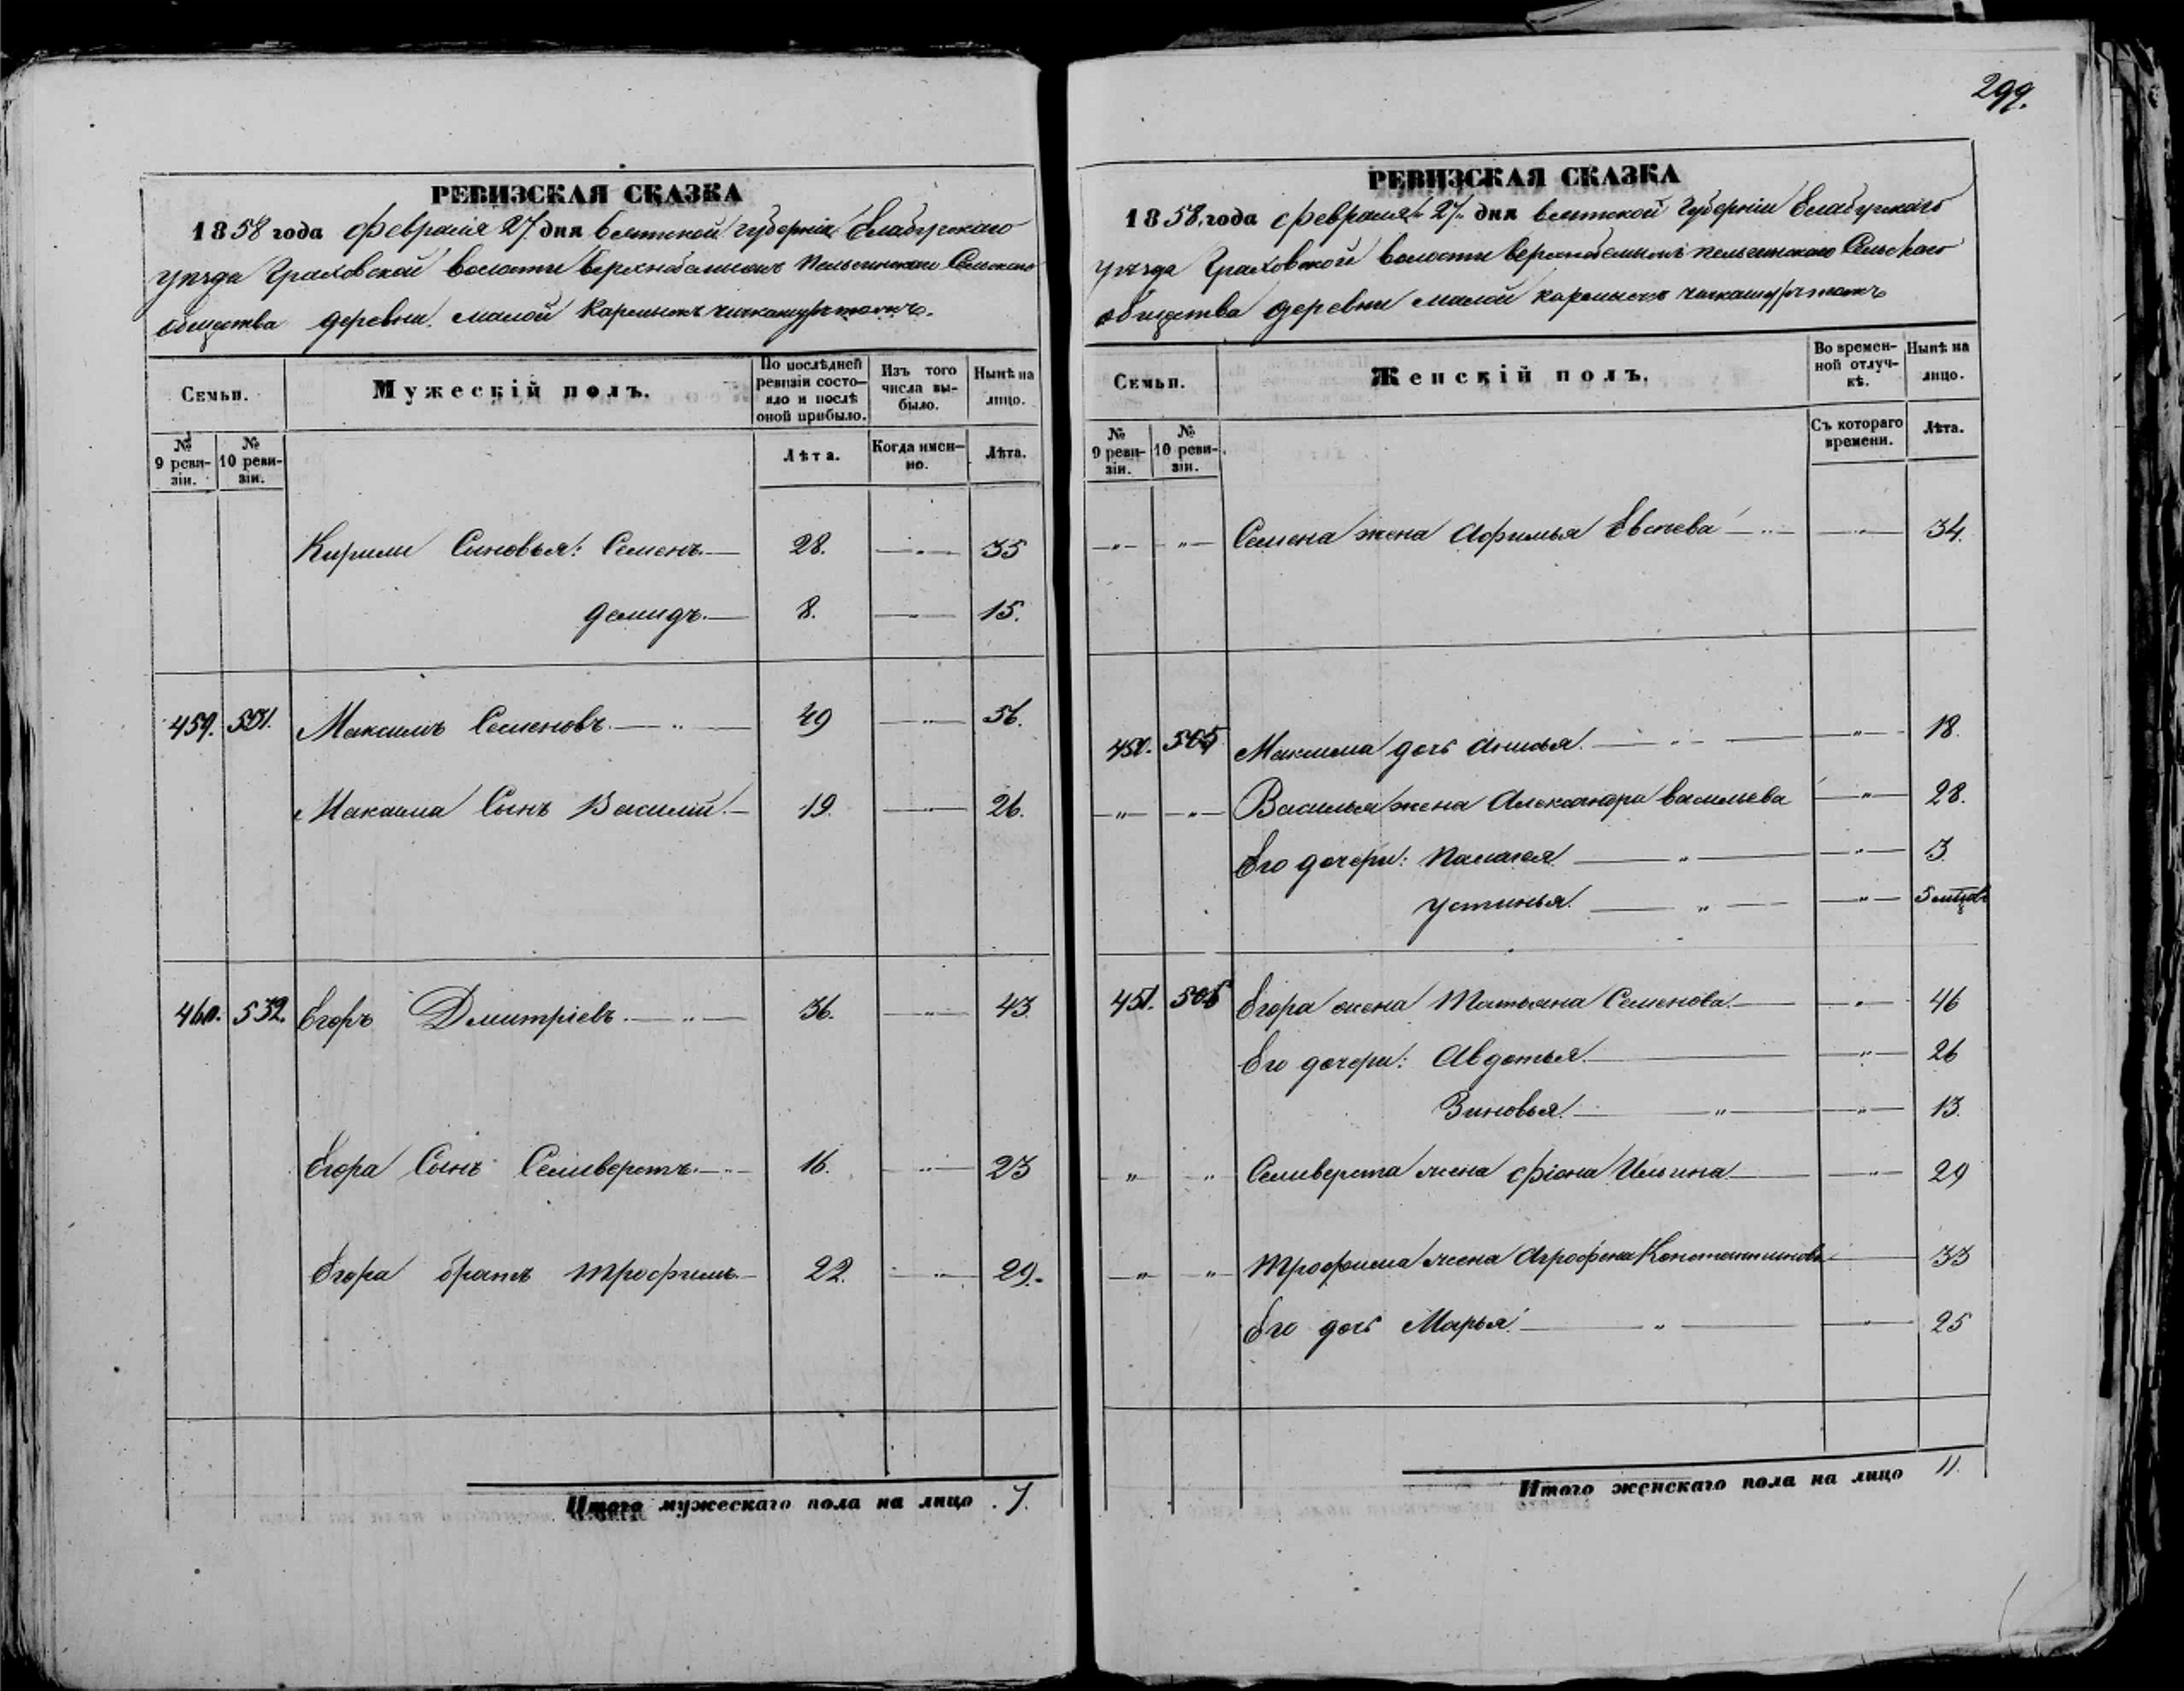 299.
РЕВИЗСКАЯ СКАЗКА
1858 года февраля 27. дня Вятской губерніи Елабурскаго
уѣзда Граховской волости Пельгинскаго Сельскаго
общества деревни малой
Семьи.
Мужескій полъ.
По послѣдней ревизіи состояло и послѣ оной прибыло.
Изъ того числа выбыло.
Нынѣ на лицо.
№ 9 ревизіи.
№ 10 ревизіи.
Лѣта.
Когда именно.
Лѣта.
Кирили Сыновья: Семенъ 28. — „ — 35
Демидъ. 8. — 15.
459. Максимъ Семеновъ. — „ — 49 — „ — 56.
Максима Сынъ Василій. 19. — „ — 26.
460. 532. Егоръ Дмитріевъ. — „ — 36. — „ — 43
Егора Сынъ Селиверстъ. — „ — 16. — „ — 23
Егора братъ трофимъ. 22. — „ — 29.
Итого мужескаго пола на лицо 7.
РЕВИЗСКАЯ СКАЗКА
1858. года февраля „27„ дня Вятской Губерніи Елабурскаго
уѣзда Граховской волости пельгинскаго Сельскаго
общества деревни малой
Семьи.
Женскій полъ.
Во временной отлучкѣ.
Нынѣ на лицо.
№ 9 ревизіи.
№ 10 ревизіи.
Съ котораго времени.
Лѣта.
— „ — — „ — Семена жена Афимья — „ — 34.
450. 505 Максима дочь Анисья. — „ — 18.
— „ — — „ — Василья жена Александра васильева — „ — 28.
Его дочери: Палагея — „ — 3
Устинья. — „ — 5
451. Егора жена Татьяна Семенова — „ — 46
Его дочери: Авдотья. — „ — 26
Зиновья. — „ — 13.
„ „ Селиверста жена Ильина — „ — 29
— „ — „ Трофима жена Агрофена Константинова 33
Его дочь Марья — „ — 25
Итого женскаго пола на лицо 11.